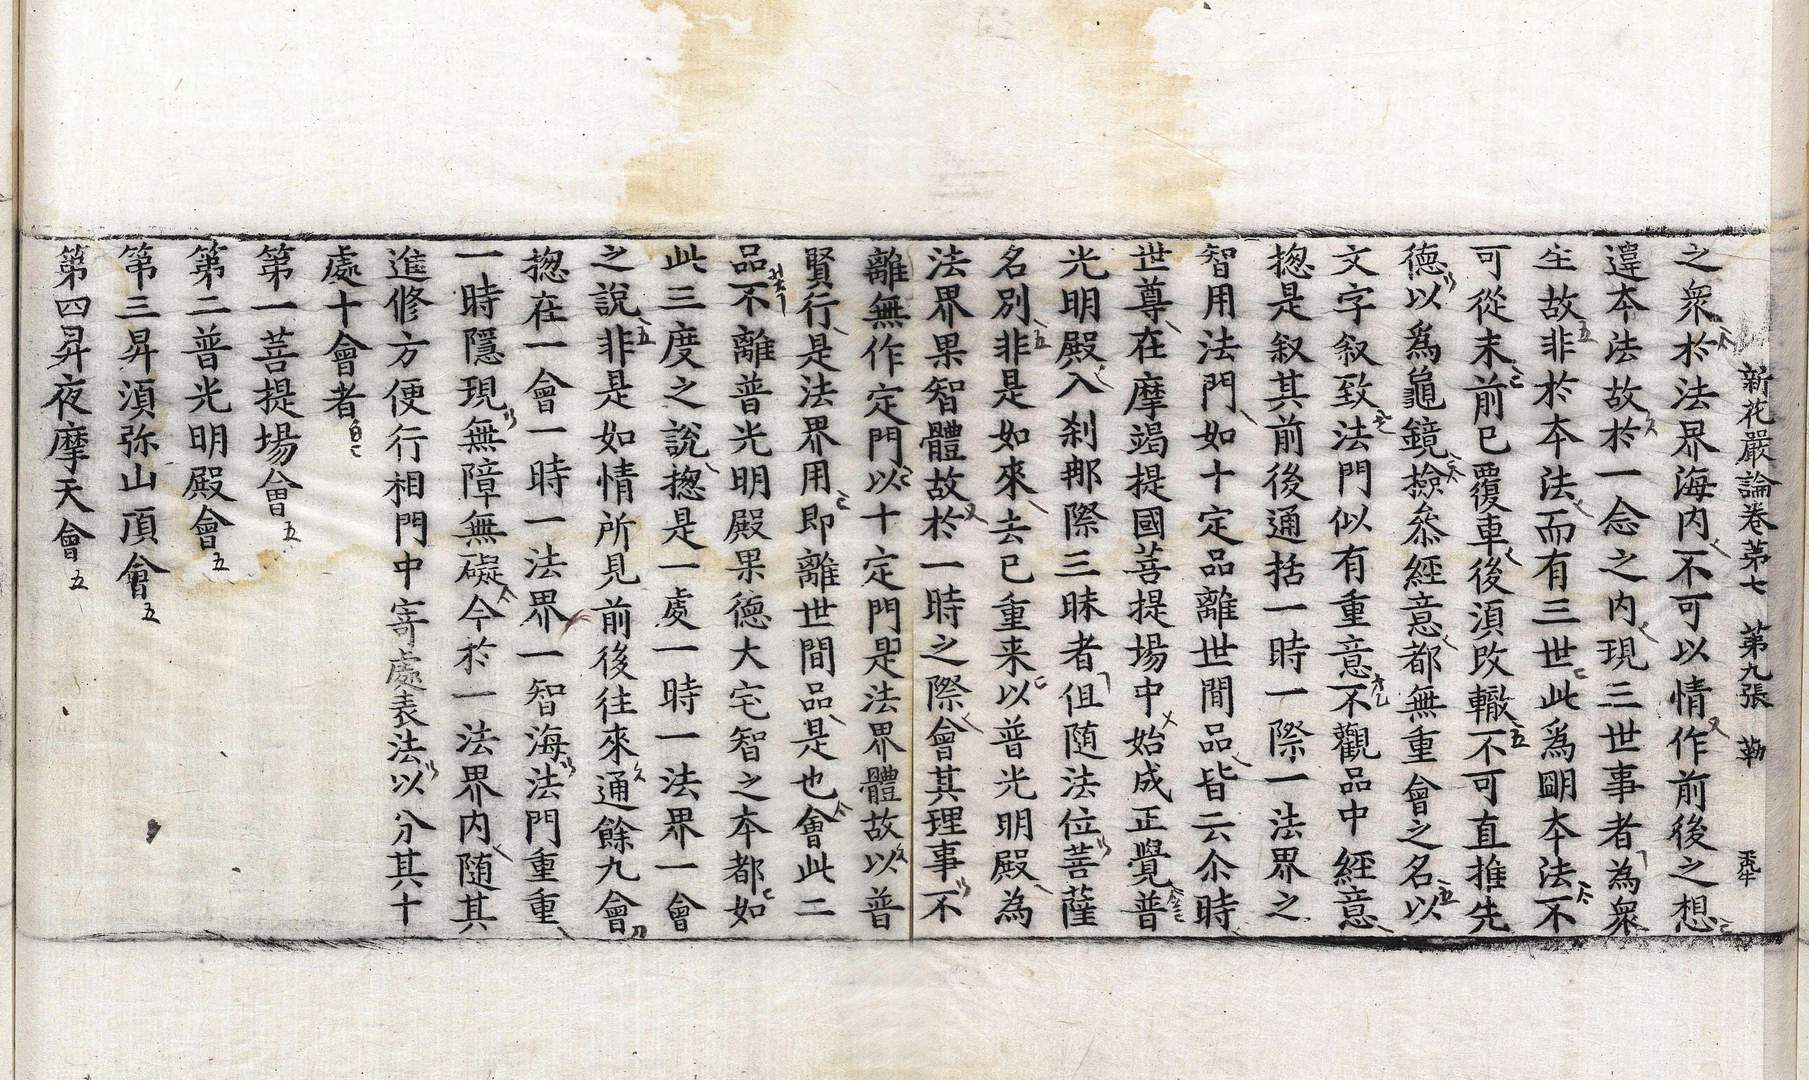 新花嚴論卷苐七　苐九張　勒
之衆於法界海內不可以情作前後之想
違本法故於一念之內現三世事者為衆
生故非於本法而有三世此爲眀本法不
可從末前已覆車後須改轍不可直推先
德以爲龜鏡撿叅經意都無重會之名以
文字叙致法門似有重意不觀品中經意
揔是叙其前後通括一時一際一法界之
智用法門如十定品離世間品皆云尒時
世尊在摩竭提國菩提場中始成正覺普
光明殿入刹那際三昧者但随法位菩薩
名別非是如來去已重来以普光明殿為
法界果智體故於一時之際會其理事不
離無作定門以十定門是法界體故以普
賢行是法界用即離世間品是也會此二
品不離普光明殿果德大宅智之本都如
此三度之說揔是一處一時一法界一會
之說非是如情所見前後往來通餘九會
揔在一會一時一法界一智海法門重重
一時隱現無障無礙今於一法界內随其
進修方便行相門中寄處表法以分其十
處十會者
第一菩提場會
第二普光明殿會
第三昇須弥山頂會
第四昇夜摩天會